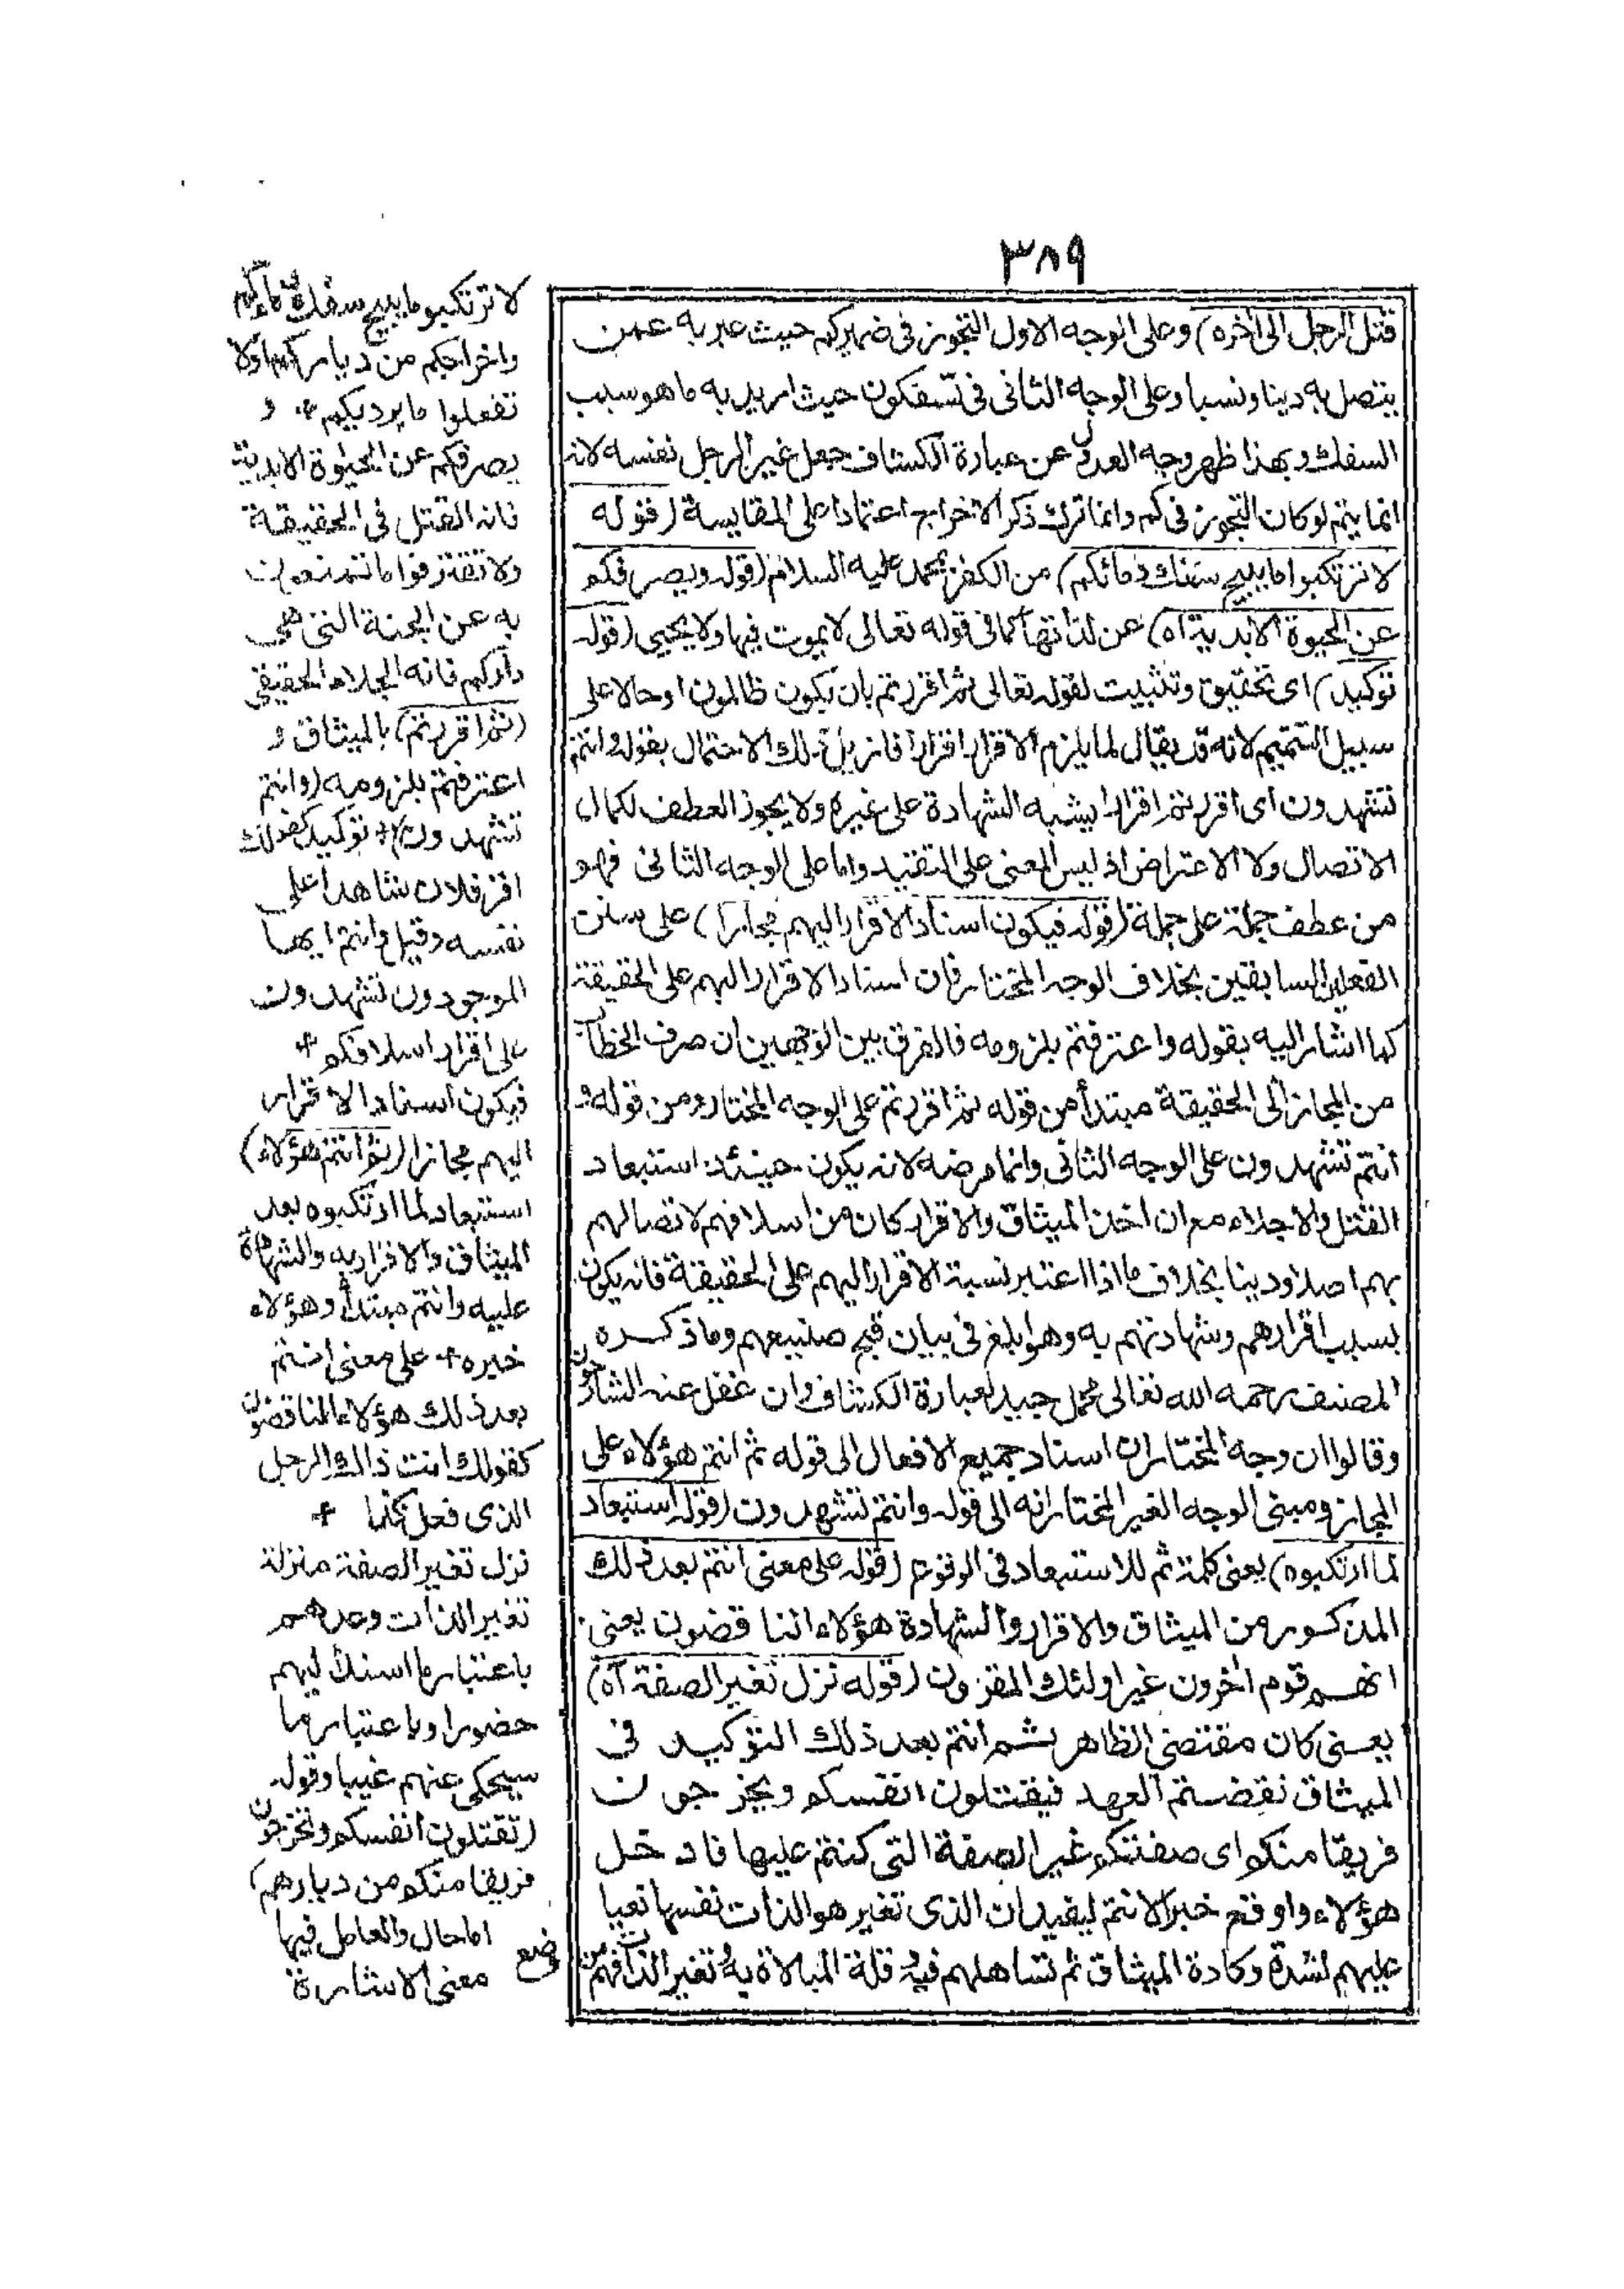 ٣٨٩
قتل الرجل الى اٰخره) وعلى الوجه الاول التجوز فى ضميركم حيث عبر به عمن
يتصل به دينا ونسبا وعلى الوجه الثانى فى تسفكون حيث اريد به ما هو سبب
السفك وبهذا ظهر وجه العدول عن عبارة الكشاف جعل غير الرجل نفسه لانه
انما يتم لو كان التجوز فى كم وانما ترك ذكر الاخراج اعتمادا على المقايسة (قوله
لا ترتكبوا ما يبيح سفك دمائكم) من الكفر بمحمد عليه السلام (قوله ويصرفكم
عن الحيوة الابدية اه) عن لذاتها كما فى قوله تعالى لا يموت فيها ولا يحيى (قوله
توكيد) اى تحقيق وتثبيت لقوله تعالى ثم اقررتم بان يكون ظالمون اوحالا على
سبيل التتميم لانه قد يقال لما يلزم الاقرار اقرارا فازيل ذلك الاحتمال بقوله وانتم
تشهدون اى اقررتم اقرارا يشبه الشهادة على غيره ولا يجوز العطف لكمال
الاتصال ولا الاعتراض اذ ليس المعنى على التقييد واما على الوجه الثانى فهو
من عطف جملة على جملة (قوله فيكون اسناد الاقرار اليهم مجازا) على سنن
الفعلين السابقين بخلاف الوجه المختار فان اسناد الاقرار اليهم على الحقيقة
كما اشار اليه بقوله واعترفتم بلزومه فالفرق بين الوجهين ان صرف الخطاب
من المجاز الى الحقيقة مبتدأ من قوله ثم اقررتم على الوجه المختار ومن قوله و
انتم تشهدون على الوجه الثانى وانما مرضه لانه يكون حينئذ استبعاد
القتل والاجلاء مع ان اخذ الميثاق والاقرار كان من اسلافهم لاتصالهم
بهم اصلا ودينا بخلاف ما اذا اعتبر نسبة الاقرار اليهم على الحقيقة فانه يكون
بسبب اقرارهم وشهادتهم به وهو ابلغ فى بيان قبح صنيعهم وما ذكره
المصنف رحمه الله تعالى محمل جيد لعبارة الكشاف وان غفل عنه الشارحون
وقالوا ان وجه المختار ان اسناد جميع الافعال الى قوله ثم انتم هؤلاء على
المجاز ومبنى الوجه الغير المختار انه الى قوله وانتم تشهدون (قوله استبعاد
لما ارتكبوه) يعنى كلمة ثم للاستبعاد فى الوقوع (قوله على معنى انتم بعد ذلك
المذكور من الميثاق والاقرار والشهادة هؤلاء الناقضون يعنى
انهم قوم اٰخرون غير اولئك المقرون (قوله نزل تغير الصفة آه)
يعنى كان مقتضى الظاهر ثم انتم بعد ذلك التوكيد فى
الميثاق نقضتم العهد فيقتلون انفسكم ويخرجون
فريقا منكم اى صفتكم غير الصفة التى كنتم عليها فادخل
هؤلاء واوقع خبرا لانتم ليفيد ان الذى تغير هو الذات نفسها نعيا
عليهم لشدة وكادة الميثاق ثم تساهلهم فيه و قلة المبالاة به و تغير الذات فهم من
وضع
لا ترتكبوا ما يبيح سفك دمائكم
واخراجكم من دياركم اولا
تفعلوا ما يرديكم + و
يصرفكم عن الحيوة الابدية
فانه القتل فى الحقيقة
ولا تقترفوا ما تمنعون
به عن الجنة التى هى
داركم فانه الجلاء الحقيقى
(ثم اقررتم) بالميثاق و
اعترفتم بلزومه (وانتم
تشهدون) + توكيد كقولك
اقر فلان شاهدا على
نفسه وقيل وانتم ايها
الموجودون تشهدون
على اقرار اسلافكم +
فيكون اسناد الاقرار
اليهم مجازا (ثم انتم هؤلاء)
استبعاد لما ارتكبوه بعد
الميثاق والاقرار به والشهادة
عليه وانتم مبتدأ وهؤلاء
خبره + على معنى انتم
بعد ذلك هؤلاء الناقضون
كقولك انت ذالك الرجل
الذى فعل كذا +
نزل تغير الصفة منزلة
تغير الذات وعدهم
باعتبار ما اسند اليهم
حضورا وباعتبار ما
سيحكى عنهم غيبا وقوله
(تقتلون انفسكم وتخرجون
فريقا منكم من ديارهم)
اما حال والعامل فيها
معنى الاشارة